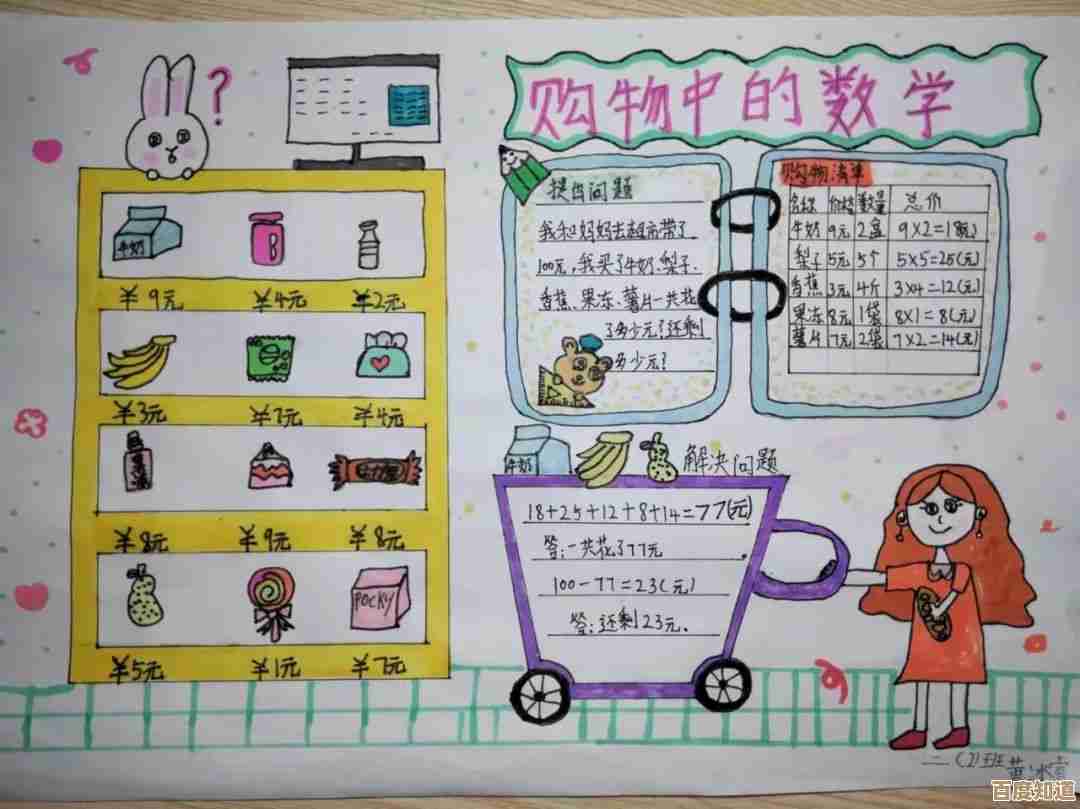 购物中的数学
?
牛奶
¥9元 ¥4元 ¥2元
¥3元 ¥7元 ¥4元
¥8元 ¥9元 ¥8元
POCKY
¥5元 ¥1元 ¥7元
提出问题
我和妈妈去超市带了
100元,我买了牛奶、梨子、
香蕉、果冻、薯片一共花
了多少元?还剩
多少元?
购物清单
名称 价格 数量 总价
牛奶 9元 2盒 9×2=18(元)
梨子 5元 5个 5×5=25(元)
香蕉 3元 4斤 3×4=12(元)
果冻 8元 1袋 8×1=8(元)
薯片 7元 2袋 7×2=14(元)
牛奶
解决问题
18+25+12+8+14=77(元)
答:一共花了77元.
100-77=23(元)
答:还剩23元.
二(2)班
百度知道